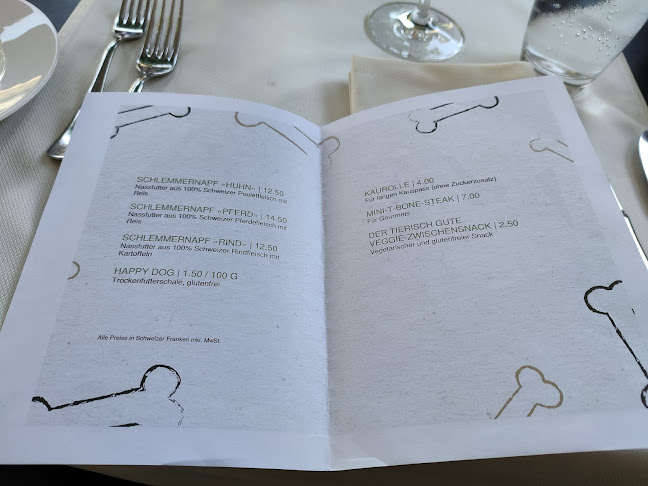 SCHLEMMERNAPF «HUHN» | 12.50
Nassfutter aus 100% Schweizer Pouletfleisch mit
Reis
SCHLEMMERNAPF «PFERD» | 14.50
Nassfutter aus 100% Schweizer Pferdefleisch mit
Reis
SCHLEMMERNAPF «RIND» | 12.50
Nassfutter aus 100% Schweizer Rindfleisch mit
Kartoffeln
HAPPY DOG | 1.50 / 100 G
Trockenfutterschale, glutenfrei
Alle Preise in Schweizer Franken inkl. MwSt.
KAUROLLE | 4.00
Für langen Kauspass (ohne Zuckerzusatz)
MINI-T-BONE-STEAK | 7.00
Für Gourmets
DER TIERISCH GUTE
VEGGIE-ZWISCHENSNACK | 2.50
Vegetarischer und glutenfreier Snack